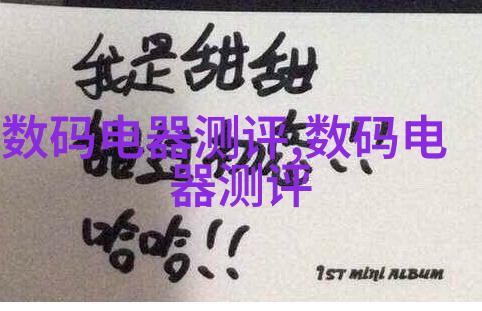 我是甜甜
数码电器测评,数码电
器测评
哈哈!!
1ST MINI ALBUM